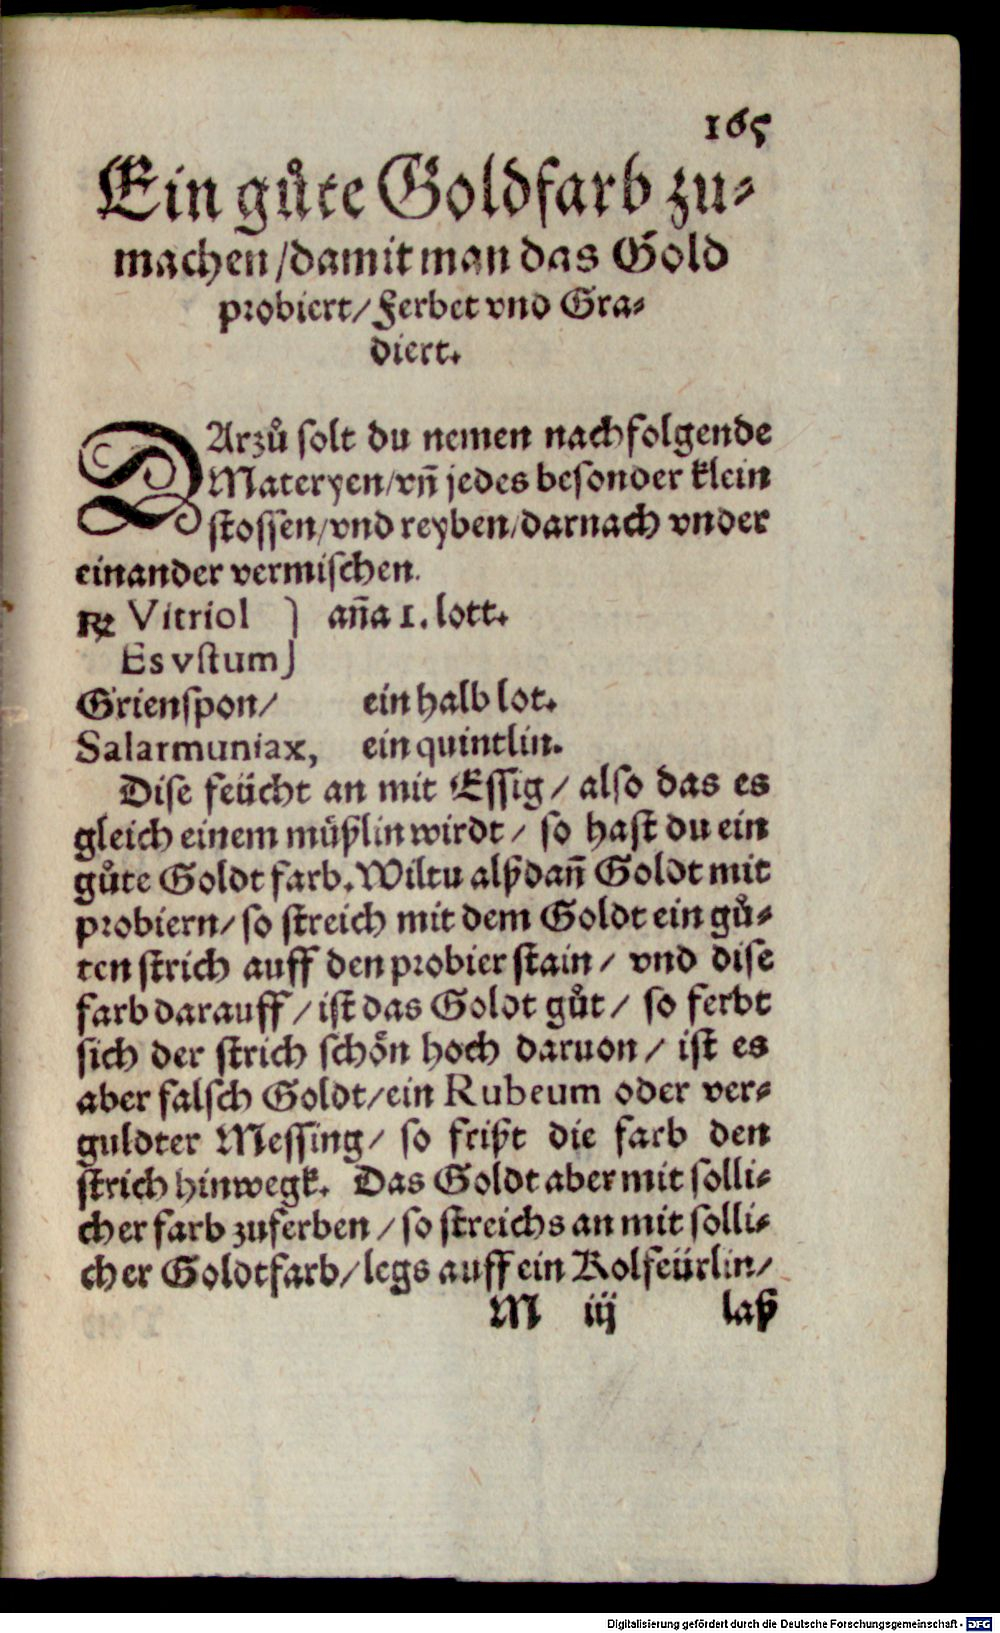 165
Ein gůte Goldfarb zu⸗
machen/damit man das Gold
probiert/Ferbet vnd Gra⸗
diert.
DArzů solt du nemen nachfolgende
Materyen/vñ jedes besonder klein
stossen/vnd reyben/darnach vnder
einander vermischen.
℞ Vitriol } aña 1. lott.
Es vstum }
Grienspon/ ein halb lot.
Salarmuniax, ein quintlin.
Dise feücht an mit Essig/ also das es
gleich einem müßlin wirdt/ so hast du ein
gůte Goldt farb. Wiltu alßdañ Goldt mit
probiern/ so streich mit dem Goldt ein gů⸗
ten strich auff den probier stain/ vnd dise
farb darauff/ ist das Goldt gůt/ so ferbt
sich der strich schön hoch daruon/ ist es
aber falsch Goldt/ein Rubeum oder ver⸗
guldter Messing/ so frißt die farb den
strich hinwegk. Das Goldt aber mit solli⸗
cher farb zuferben/ so streichs an mit solli⸗
cher Goldtfarb/legs auff ein Kolfeürlin/
M iij laß
Digitalisierung gefördert durch die Deutsche Forschungsgemeinschaft - DFG